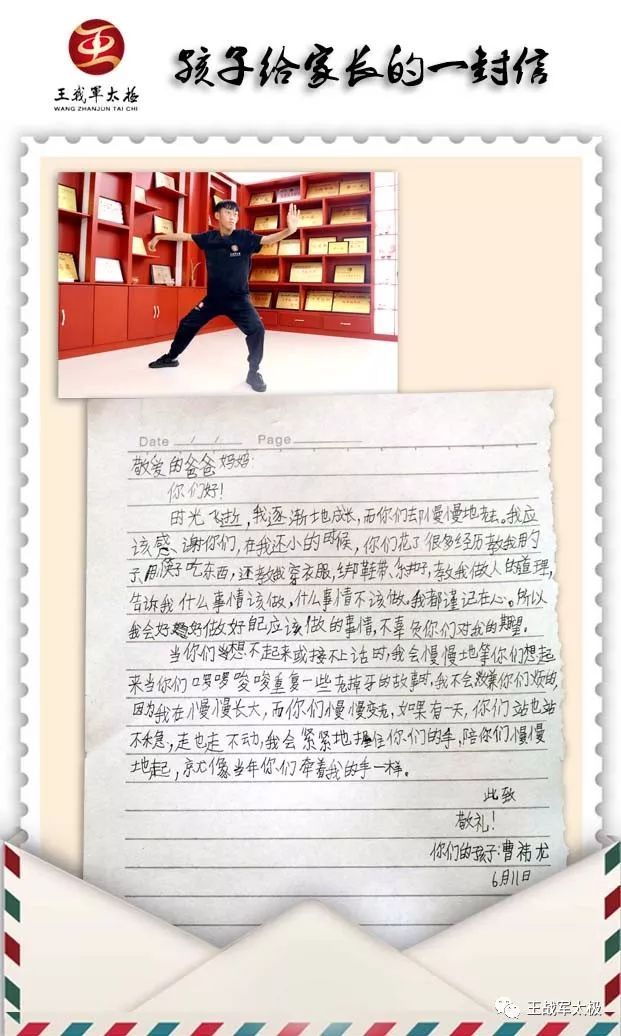 王战军太极
WANG ZHANJUN TAI CHI
孩子给家长的一封信
Date / / Page
敬爱的爸爸妈妈:
你们好!
时光飞逝,我逐渐地成长,而你们却慢慢地老去。我应
该感谢你们,在我还小的时候,你们花了很多经历教我用勺
子、用筷子吃东西,还教我穿衣服,绑鞋带、系扣子,教我做人的道理,
告诉我什么事情该做,什么事情不该做。我都谨记在心。所以
我会好好做好自己应该做的事情,不辜负你们对我的期望。
当你们想不起来或接不上话时,我会慢慢地等你们想起
来当你们啰啰唆唆重复一些老掉牙的故事时,我不会嫌你们烦的,
因为我在慢慢长大,而你们慢慢变老,如果有一天,你们站也站
不稳,走也走不动,我会紧紧地握住你们的手,陪你们慢慢
地走,就像当年你们牵着我的手一样。
此致
敬礼!
你们的孩子:曹祎龙
6月11日
王战军太极